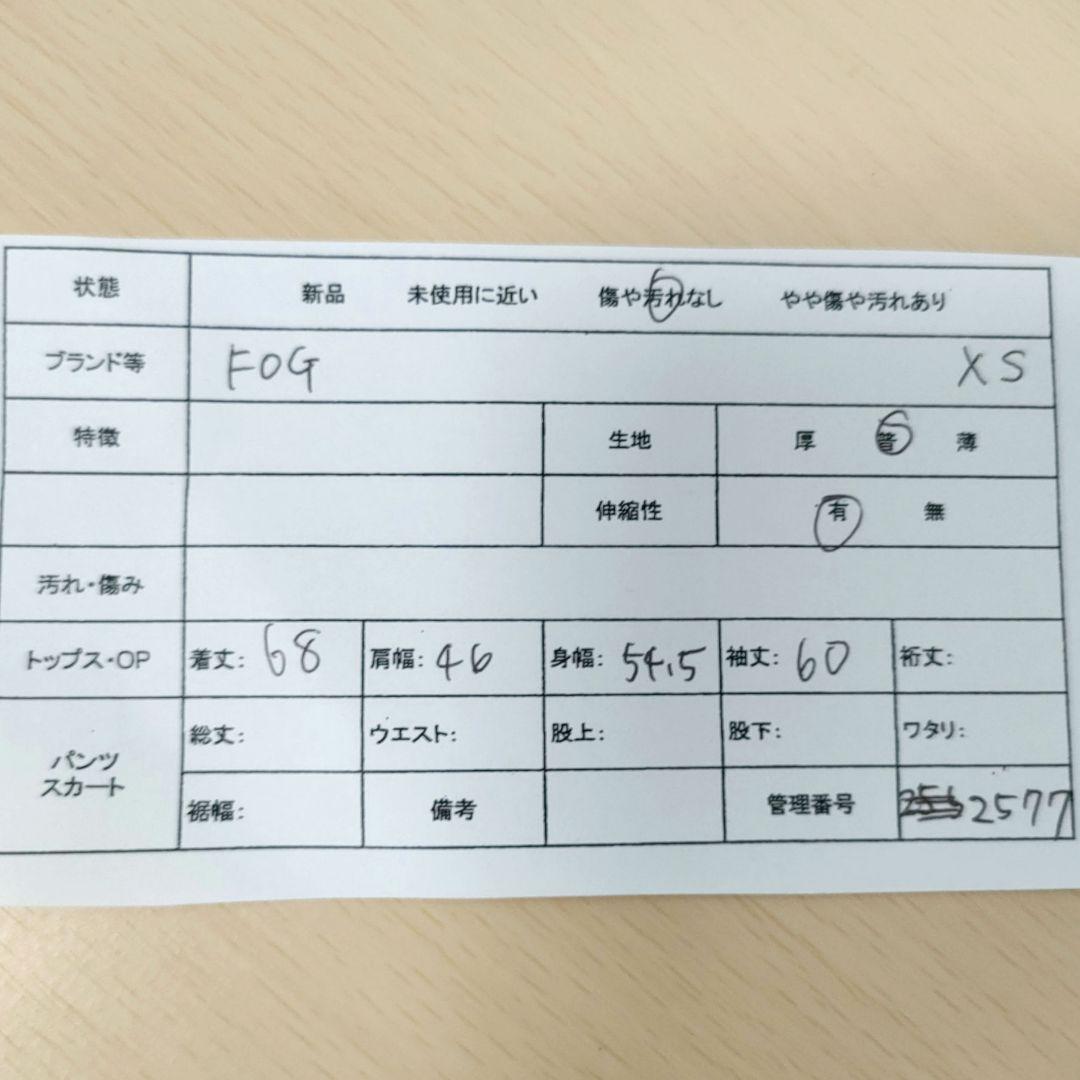 状態 新品 未使用に近い 傷や汚れなし やや傷や汚れあり
ブランド等 FOG XS
特徴 生地 厚 普 薄
伸縮性 有 無
汚れ・傷み
トップス・OP 着丈: 68 肩幅: 46 身幅: 54.5 袖丈: 60 裄丈:
パンツ
スカート
総丈: ウエスト: 股上: 股下: ワタリ:
裾幅: 備考 管理番号 2577